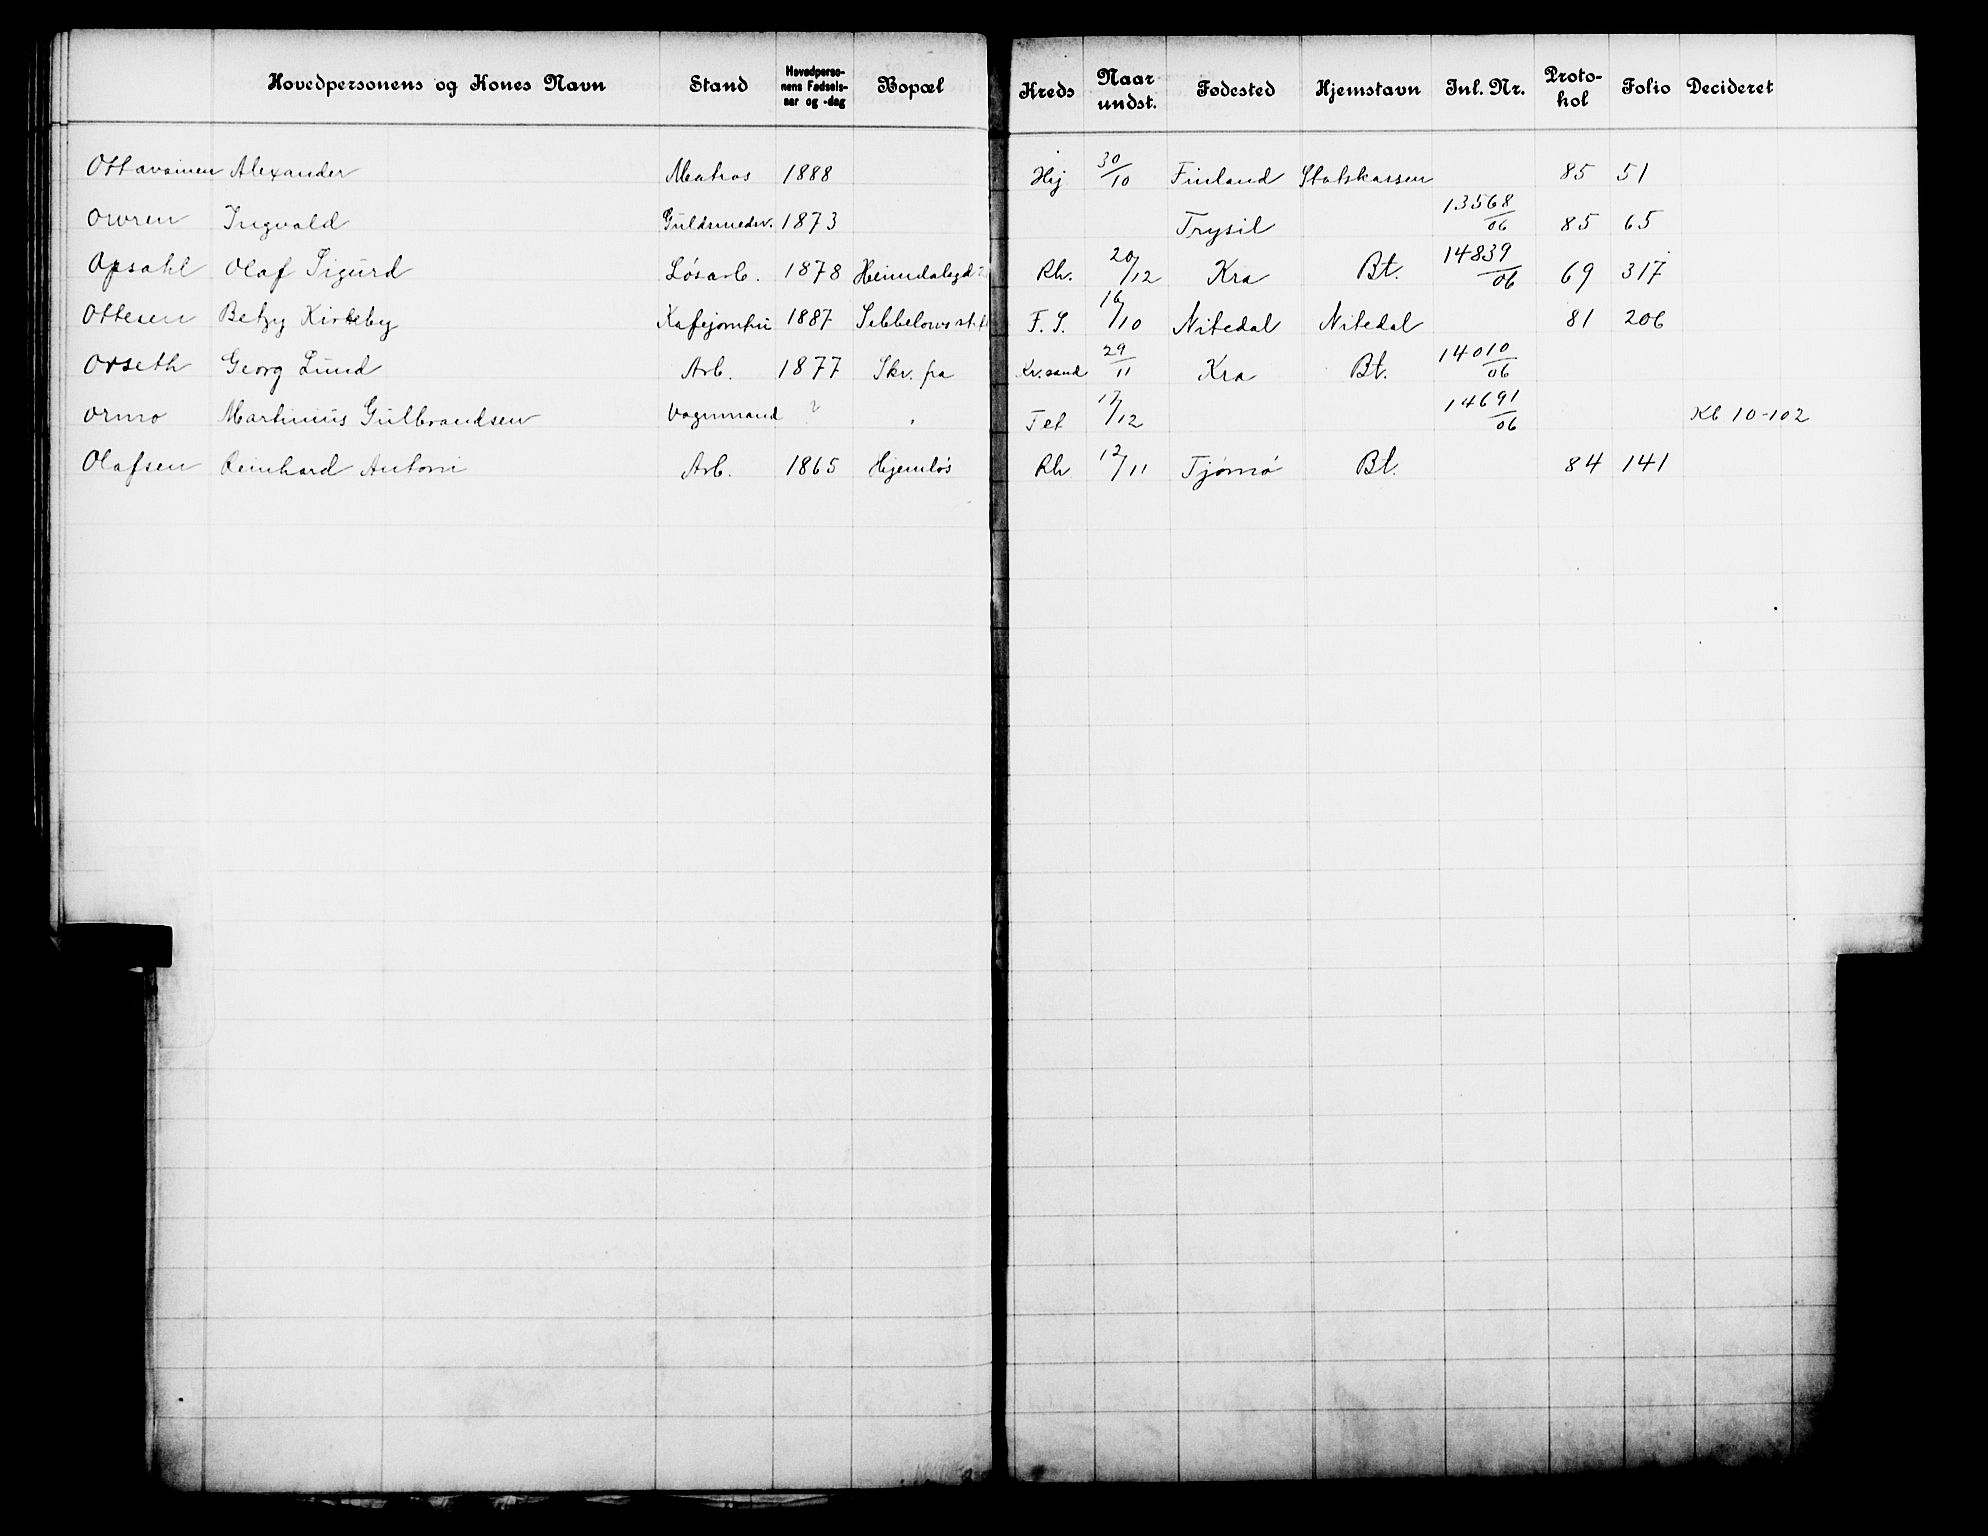 Hovedpersonens og Kones Navn Stand Hovedpersonens Fødselsaar og -dag Bopæl Kreds Naar undst. Fødested Hjemstavn Inl. Nr. Protokol Folio Decideret
Ottavainen Alexander Matros 1888 Hej 30/10 Finland Statskassen 85 51
Owren Ingvald Guldsmedsv. 1873 Trysil 13568/06 85 65
Opsahl Olaf Sigurd Løsarb. 1878 Heimdalsgd Rh. 20/12 Kra Bt. 14839/06 69 317
Ottesen Betzy Kirkeby Kafejomfru 1887 Sibbelows st. F. S. 16/10 Nitedal Nitedal 81 206
Orseth Georg Lund Arb. 1877 Skr. fra Kr.sand 29/11 Kra Bt. 14010/06
Ormo Martinius Gulbrandsen Vognmand ? Tet 17/12 14691/06 Kb 10-102
Olafsen Reinhard Antoni Arb. 1865 Hjemløs Rh 12/11 Tjømø Bt. 84 141